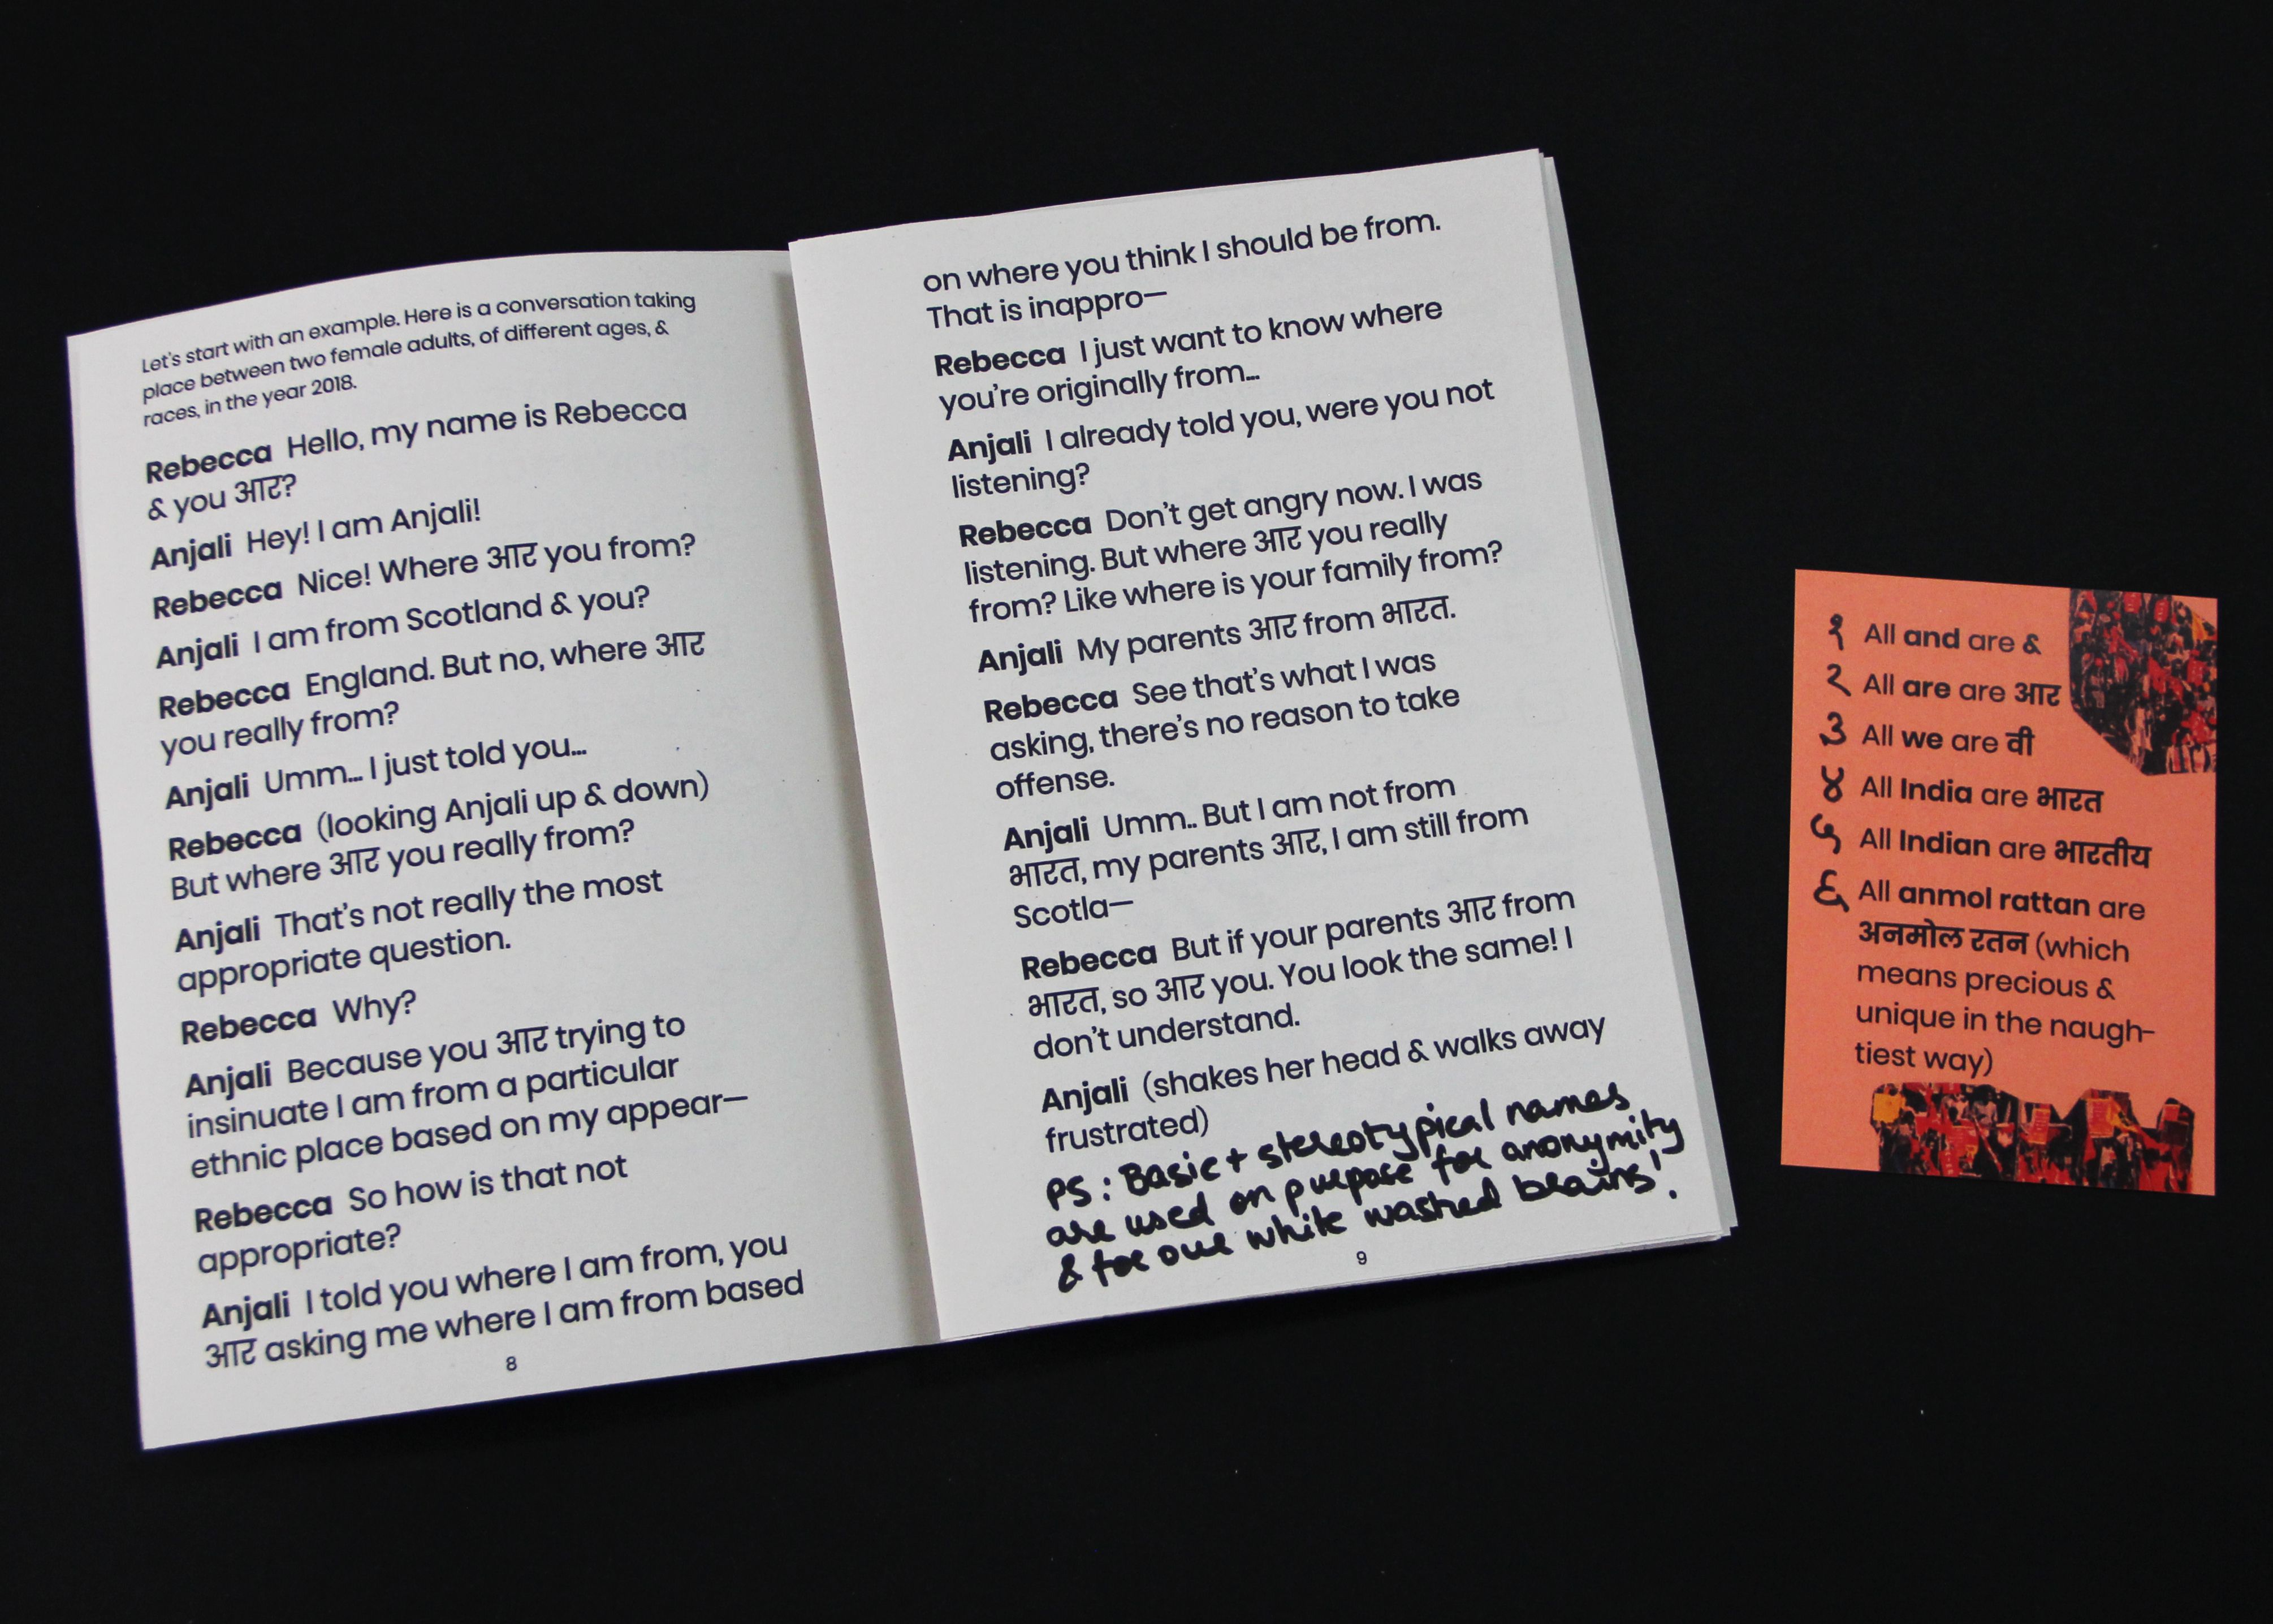 Let's start with an example. Here is a conversation taking
place between two female adults, of different ages, &
races, in the year 2018.
Rebecca Hello, my name is Rebecca
& you आर?
Anjali Hey! I am Anjali!
Rebecca Nice! Where आर you from?
Anjali I am from Scotland & you?
Rebecca England. But no, where आर
you really from?
Anjali Umm... I just told you...
Rebecca (looking Anjali up & down)
But where आर you really from?
Anjali That's not really the most
appropriate question.
Rebecca Why?
Anjali Because you आर trying to
insinuate I am from a particular
ethnic place based on my appear—
Rebecca So how is that not
appropriate?
Anjali I told you where I am from, you
आर asking me where I am from based
8
on where you think I should be from.
That is inappro—
Rebecca I just want to know where
you're originally from...
Anjali I already told you, were you not
listening?
Rebecca Don't get angry now. I was
listening. But where आर you really
from? Like where is your family from?
Anjali My parents आर from भारत.
Rebecca See that's what I was
asking, there's no reason to take
offense.
Anjali Umm.. But I am not from
भारत, my parents आर, I am still from
Scotla—
Rebecca But if your parents आर from
भारत, so आर you. You look the same! I
don't understand.
Anjali (shakes her head & walks away
frustrated)
PS: Basic + stereotypical names
are used on purpose for anonymity
& for our white washed brains!
9
१ All and are &
२ All are are आर
३ All we are वी
४ All India are भारत
५ All Indian are भारतीय
६ All anmol rattan are
अनमोल रतन (which
means precious &
unique in the naugh-
tiest way)